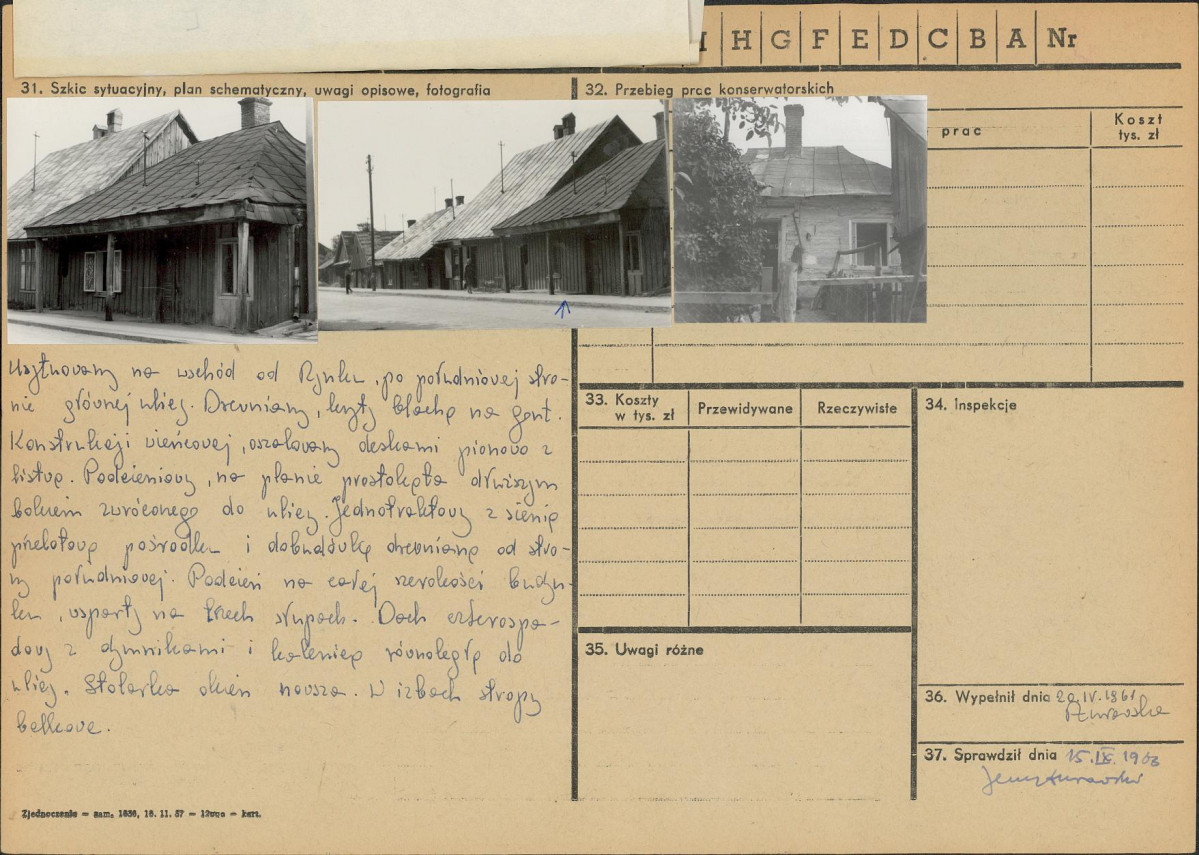 H G F E D C B A Nr
31. Szkic sytuacyjny, plan schematyczny, uwagi opisowe, fotografia
32. Przebieg prac konserwatorskich
prac
Koszt
tys. zł
Usytuowany na wschód od Rynku, po południowej stro-
nie głównej ulicy. Drewniany, kryty blachą na gont.
Konstrukcji wieńcowej, oszalowany deskami pionowo z
listwą. Podcieniowy, na planie prostokąta dłuższym
bokiem zwróconego do ulicy. Jednotraktowy z sienią
przelotową pośrodku i dobudówką drewnianą od stro-
ny południowej. Podcień na całej szerokości budyn-
ku, wsparty na trzech słupach. Dach czterospa-
dowy z dymnikami i kalenicą równoległą do
ulicy. Stolarka okien nowsza. W izbach stropy
belkowe.
33. Koszty
w tys. zł
Przewidywane
Rzeczywiste
34. Inspekcje
35. Uwagi różne
36. Wypełnił dnia 20.IV.1961
37. Sprawdził dnia 15.IX.1963
Zjednoczenie — zam. 1636, 16. 11. 57 — 12000 — kart.